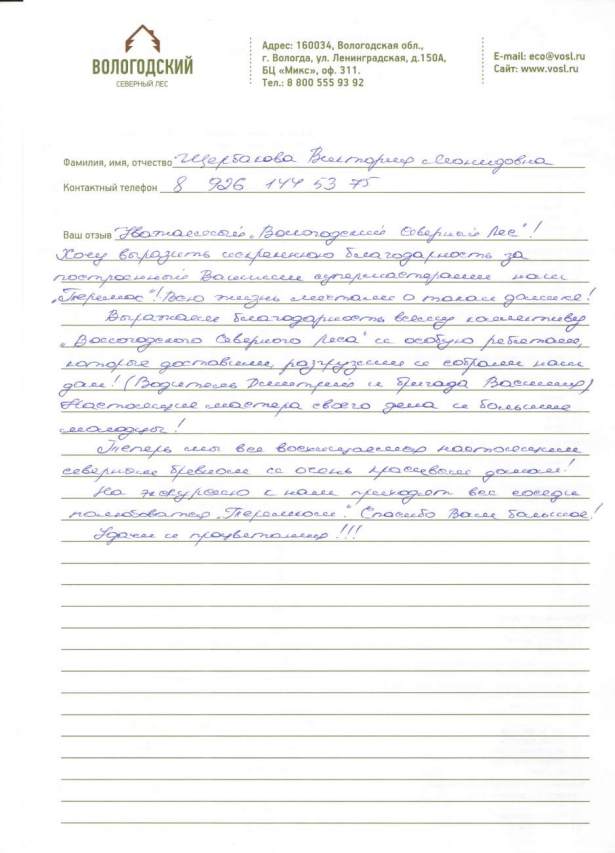 ВОЛОГОДСКИЙ
СЕВЕРНЫЙ ЛЕС
Адрес: 160034, Вологодская обл.,
г. Вологда, ул. Ленинградская, д.150А,
БЦ «Микс», оф. 311.
Тел.: 8 800 555 93 92
E-mail: eco@vosl.ru
Сайт: www.vosl.ru
Фамилия, имя, отчество Щербакова Виктория Леонидовна
Контактный телефон 8 926 144 53 75
Ваш отзыв Уважаемый „Вологодский Северный Лес"!
Хочу выразить искреннюю благодарность за
построенный Вашими супермастерами наш
„Теремок"! Всю жизнь мечтали о таком домике!
Выражаем благодарность всему коллективу
„Вологодского Северного Леса" и особую ребятам,
которые доставили, разгрузили и собрали наш
дом! (Водитель Дмитрий и бригада Василия)
Настоящие мастера своего дела и большие
молодцы!
Теперь мы все восхищаемся настоящим
северным бревном и очень красивым домом!
На экскурсию к нам приходят все соседи
полюбоваться „Теремком". Спасибо Вам большое!
Удачи и процветания!!!